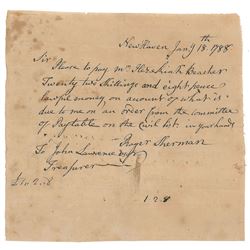 New Haven Jany 18th 1788
Sir
Please to pay Mr Hezekiah Beacher
Twenty two Shillings and eight pence
lawful money, on account of what is
due to me on an order from the committee
of Paytable on the Civil list in your hands
Roger Sherman
To John Lawrence Esqr
Treasurer
1 2 8